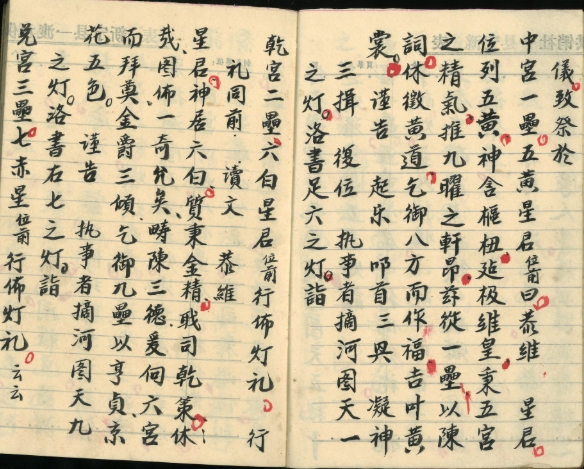 儀致祭於
中宮一壘五黃星君位前曰恭維 星君
位列五黃神含樞杻廷极維皇秉五宮
之精氣推九曜之軒昂兹從一壘以陳
詞休徵黃道乞御八方而作福吉叶黃
裳 謹告 起乐 叩首三興 凝神
三揖 復位 执事者摘河图天一
之灯洛書足六之灯詣
乾宮二壘六白星君位前行佈灯礼 行
礼同前 讀文 恭維
星君神居六白質秉金精戢司乾策休
我图佈一奇允矣畴陳三德爰伺六宮
而拜奠金爵三傾乞御九壘以亨貞京
花五色 謹告 执事者摘河图天九
之灯洛書右七之灯詣
兌宮三壘七赤星位前行佈灯礼云云